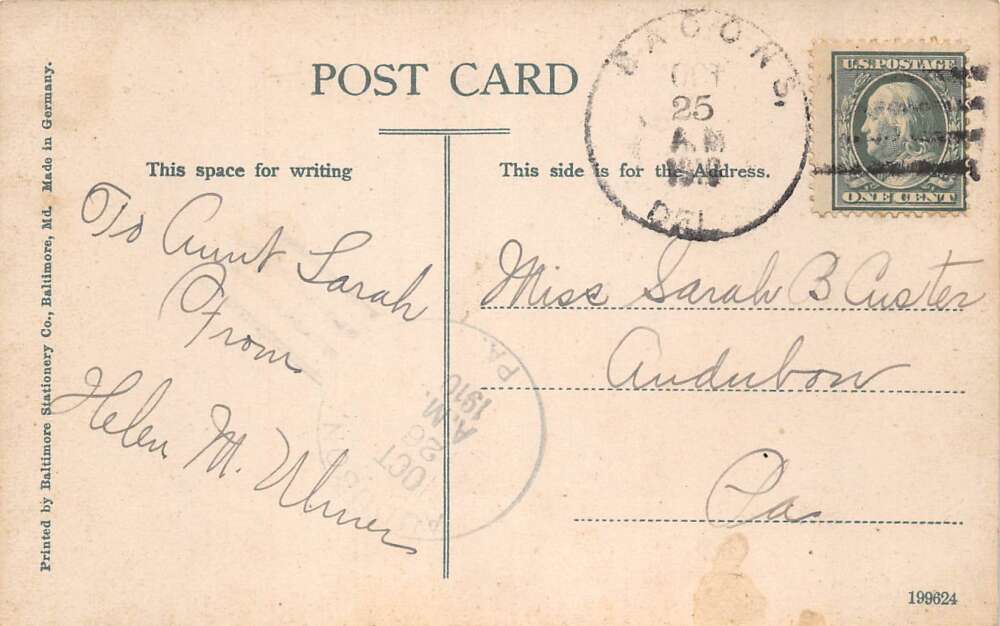 Printed by Baltimore Stationery Co., Baltimore, Md. Made in Germany.
POST CARD
This space for writing
To Aunt Sarah
From
Helen M. Ulmer
This side is for the Address.
BACONS,
OCT
25
A.M
1910
DEL.
U.S. POSTAGE
ONE CENT
Miss Sarah B Custer
Audubon
Pa
OCT
26
A.M.
1910
PA.
199624